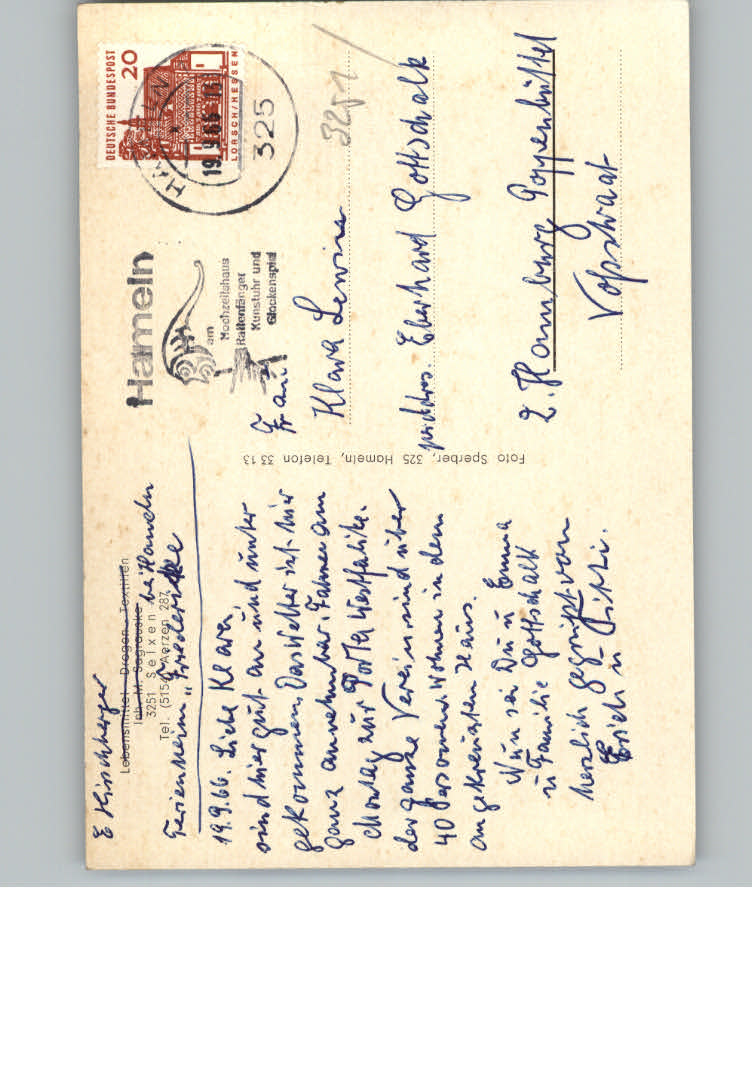 E Kirschberger
Lebensmittel Drogen Textilien
Joh. M. Sagrauske
3251 Selxen bei Hameln
Tel. (5154) Aerzen 287
Ferienheim „Friedericke
19.9.66. Liebe Klara,
sind hier gut an und unter
gekommen. Das Wetter ist hier
ganz annehmbar. Fahren am
zur Porta Westfalika.
der ganze Verein sind über
40 Personen wohnen in dem
angekreuzten Haus.
Nun sei Du u Emma
u Familie Gottschalk
herzlich gegrüßt von
Erich u
Foto Sperber, 325 Hameln, Telefon 33 13
DEUTSCHE BUNDESPOST
20
LORSCH/HESSEN
HAMELN
19.9.66
325
Hameln
am
Hochzeitshaus
Rattenfänger
Kunstuhr und
Glockenspiel
Frau
Klara
3251
Eberhard Gottschalk
2. Hamburg Poppenbüttel
Voßstraat